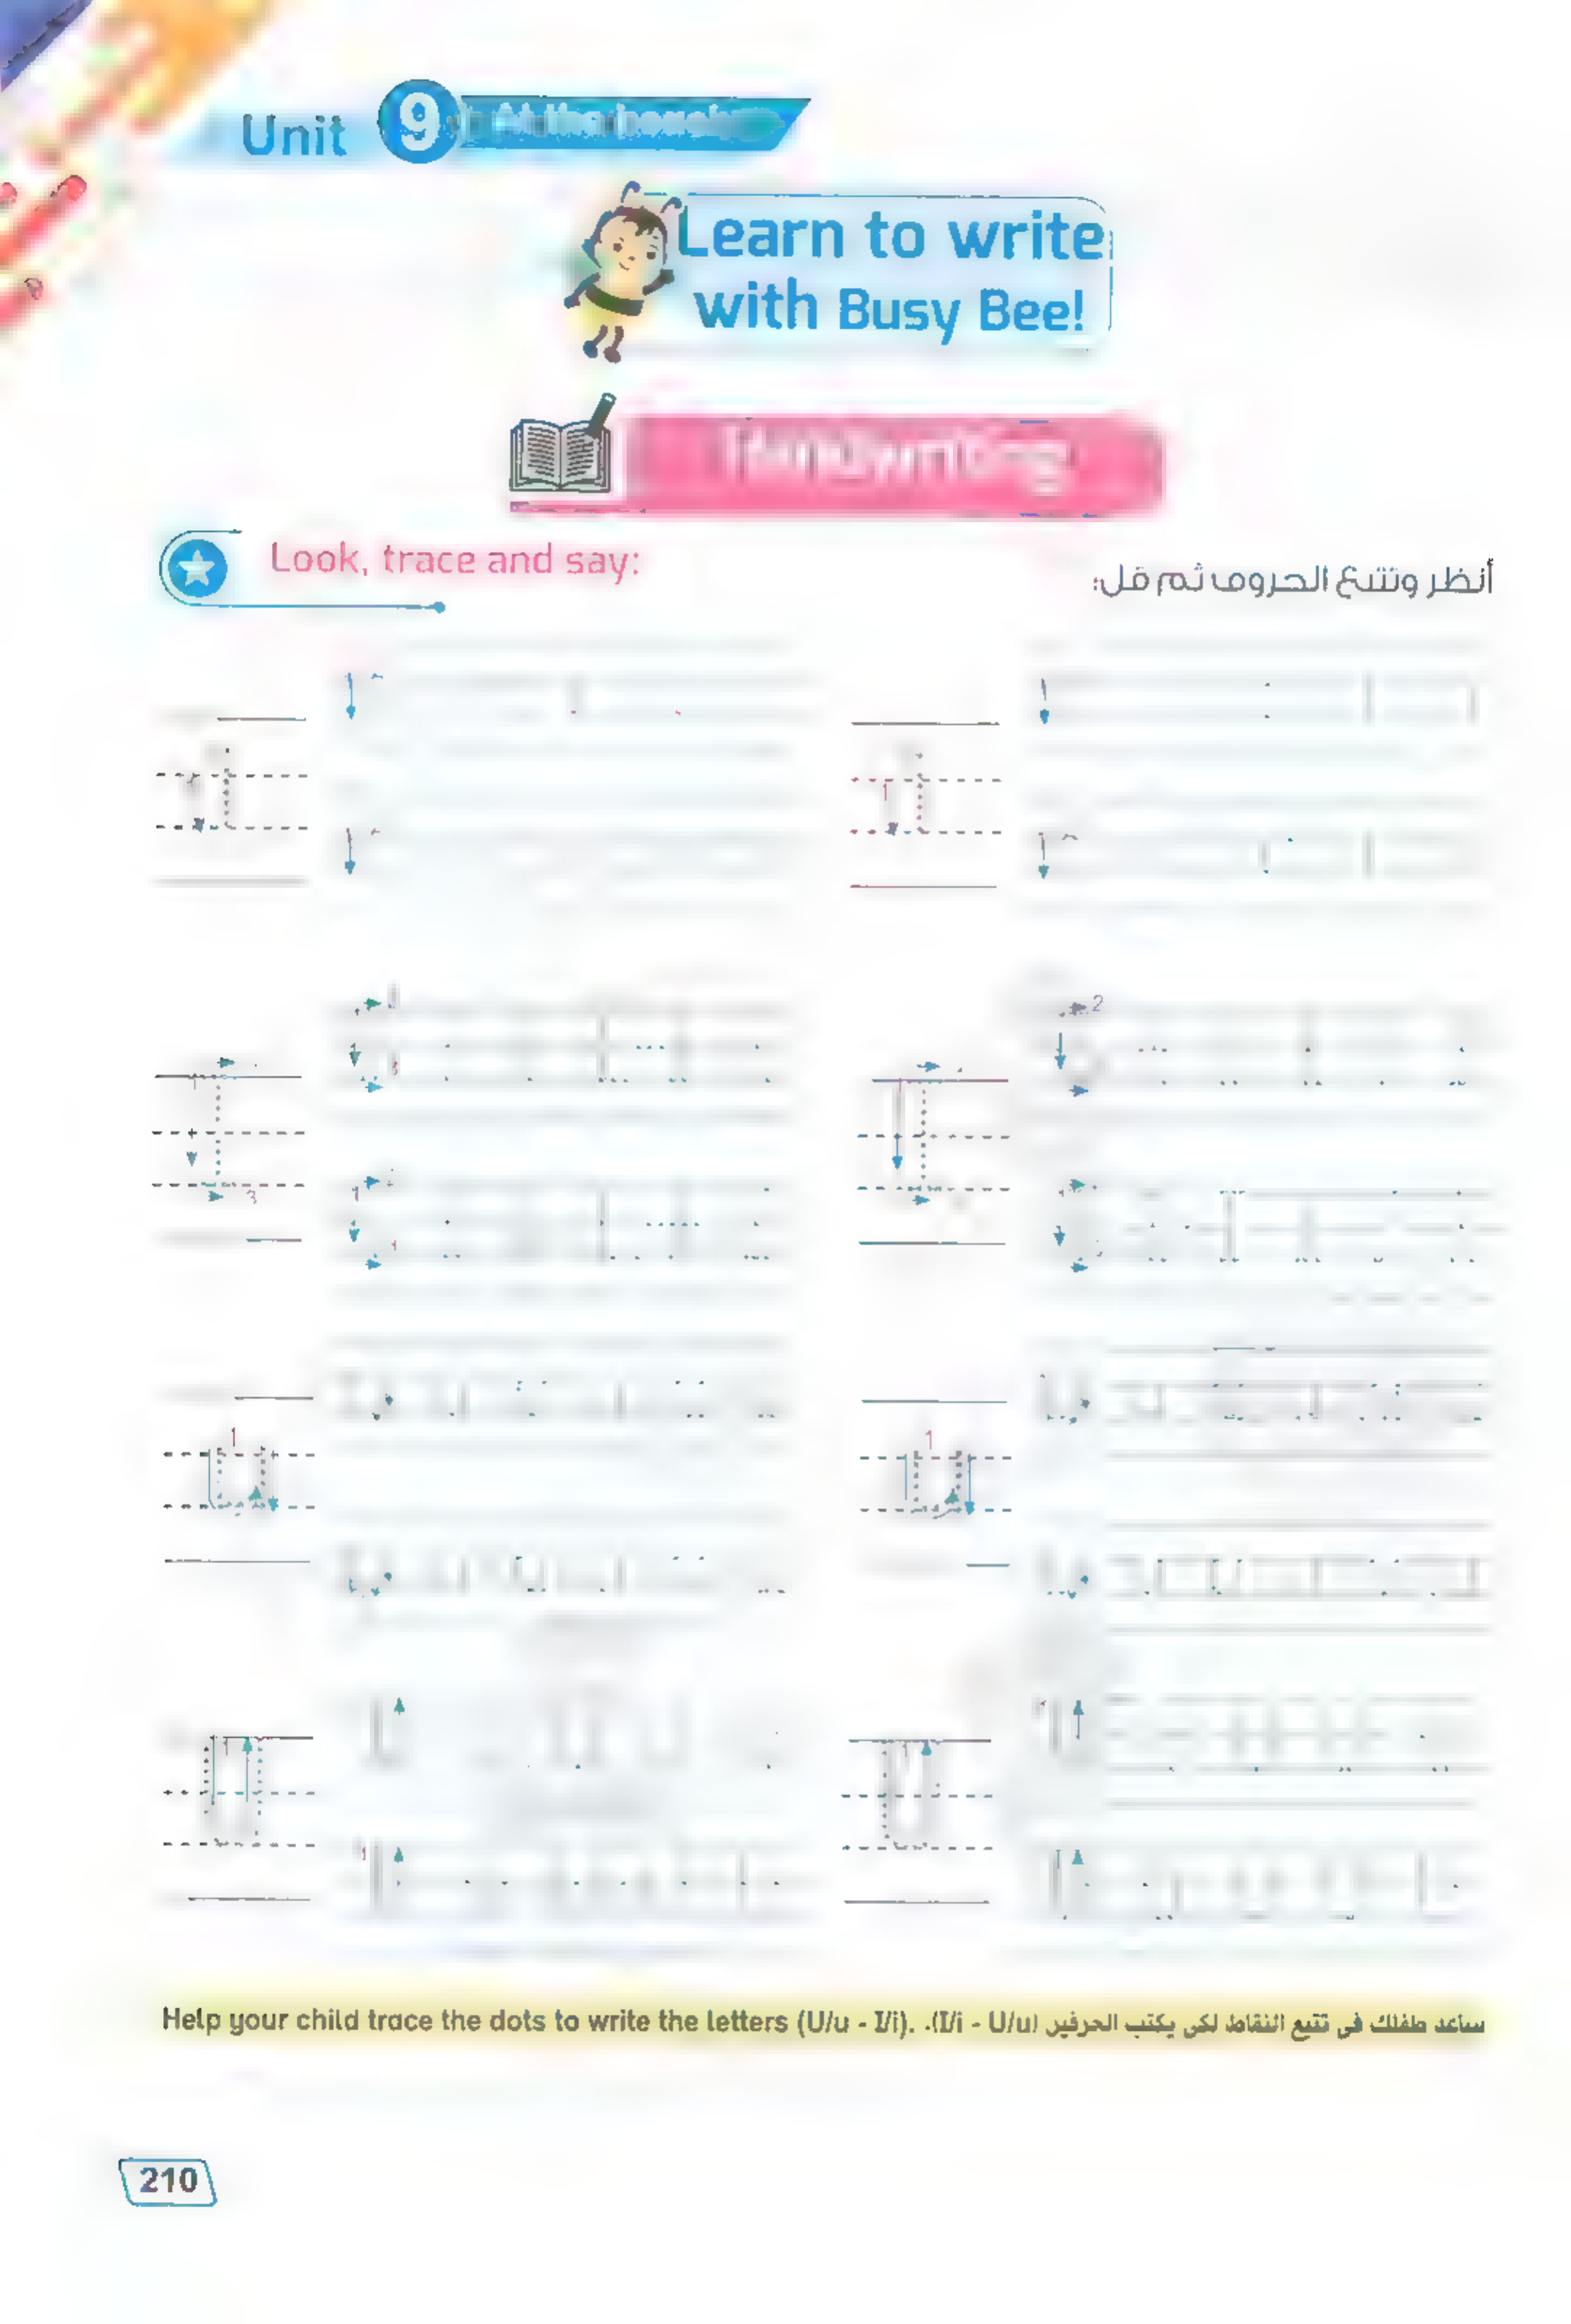 Unit 9
Learn to write
with Busy Bee!
Handwriting
Look, trace and say:
أنظر وتتبع الحروف ثم قل:
Help your child trace the dots to write the letters (U/u - I/i).
ساعد طفلك فى تتبع النقاط لكى يكتب الحرفين (I/i - U/u).
210